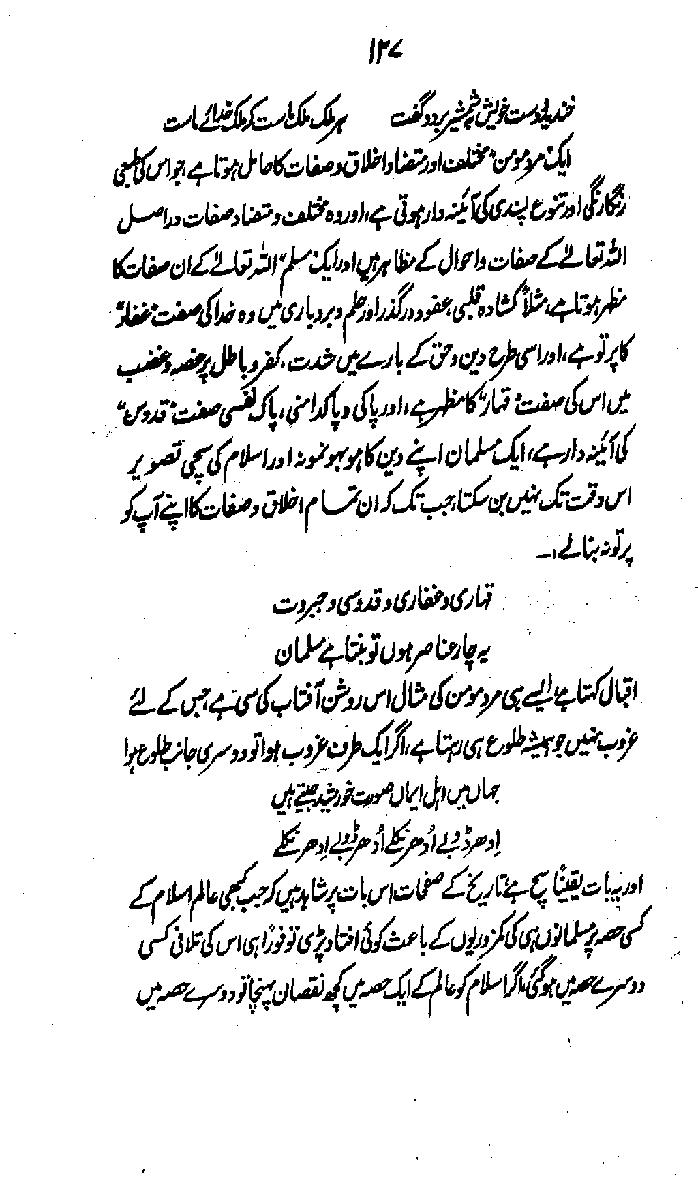 ۱۲۷
خندید و دست خویش بہ شمشیر برد و گفت ہر ملک ملک ماست کہ ملک خدائے ماست
ایک مرد مومن" مختلف اور متضاد اخلاق و صفات کا حامل ہوتا ہے، جو اس کی طبعی
رنگا رنگی اور تنوع پسندی کی آئینہ دار ہوتی ہے، اور وہ مختلف و متضاد صفات دراصل
اللہ تعالےٰ کے صفات و احوال کے مظاہر ہیں اور ایک مسلم" اللہ تعالےٰ کے ان صفات کا
مظہر ہوتا ہے، مثلاً کشادہ قلبی، عفو و درگذر اور حلم و بردباری میں وہ خدا کی صفت "غفار"
کا پرتو ہے، اور اسی طرح دین و حق کے بارے میں شدت، کفر و باطل پر غصہ و غضب
میں اس کی صفت "قہار" کا مظہر ہے، اور پاکی و پاکدامنی، پاک نفسی صفت "قدوس"
کی آئینہ دار ہے، ایک مسلمان اپنے دین کا ہو بہو نمونہ اور اسلام کی سچی تصویر
اس وقت تک نہیں بن سکتا، جب تک کہ ان تمام اخلاق و صفات کا اپنے آپ کو
پرتو نہ بنا لے،۔
قہاری و غفاری و قدوسی و جبروت
یہ چار عناصر ہوں تو بنتا ہے مسلمان
اقبال کہتا ہے، ایسے ہی مرد مومن کی مثال اس روشن آفتاب کی سی ہے، جس کے لئے
غروب نہیں جو ہمیشہ طلوع ہی رہتا ہے، اگر ایک طرف غروب ہوا تو دوسری جانب طلوع ہوا
جہاں میں اہل ایماں صورت خورشید جیتے ہیں
اِدھر ڈوبے اُدھر نکلے اُدھر ڈوبے اِدھر نکلے
اور یہ بات یقیناً سچ ہے تاریخ کے صفحات اس بات پر شاہد ہیں کہ جب کبھی عالم اسلام کے
کسی حصہ پر مسلمانوں ہی کی کمزوریوں کے باعث کوئی افتاد پڑی تو فوراً ہی اس کی تلافی کسی
دوسرے حصہ میں ہو گئی، اگر اسلام کو عالم کے ایک حصہ میں کچھ نقصان پہنچا تو دوسرے حصہ میں